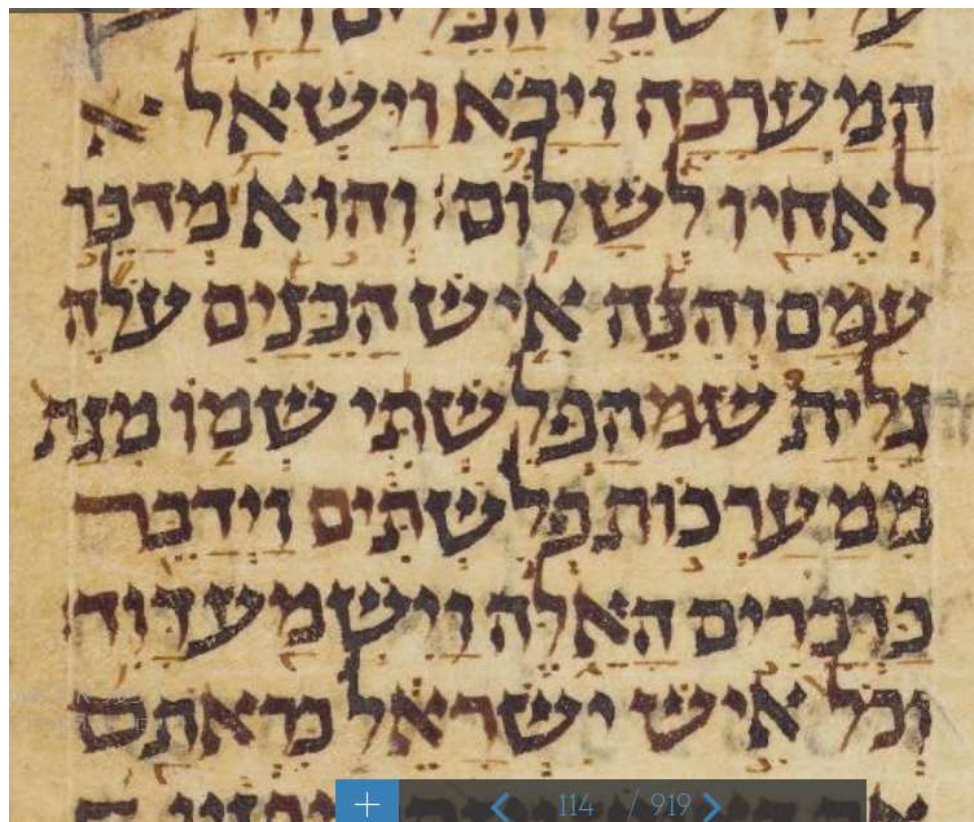 המערכה ויבא וישאל א
לאחיו לשלום׃ והוא מדבר
עמם והנה איש הבנים עלה
גלית שמהפלשתי שמו מגת
ממערכות פלשתים וידבר
כדברים האלה וישמע דוד׃
וכל איש ישראל בראתם
+ < 114 / 919 >